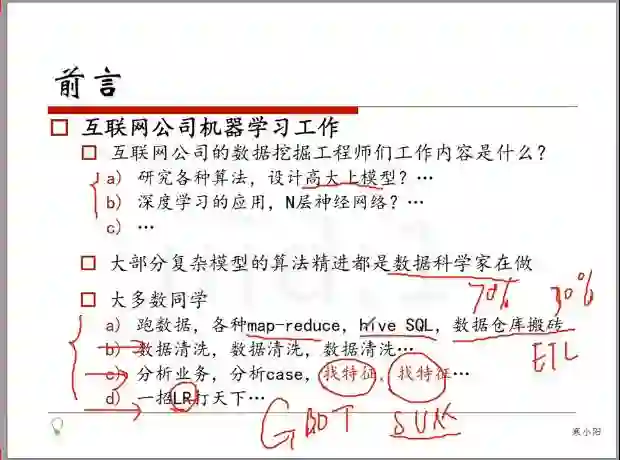 前言
互联网公司机器学习工作
互联网公司的数据挖掘工程师们工作内容是什么?
a) 研究各种算法，设计高大上模型？…
b) 深度学习的应用，N层神经网络？…
c) …
大部分复杂模型的算法精进都是数据科学家在做
70% 30%
大多数同学
a) 跑数据，各种map-reduce，hive SQL，数据仓库搬砖
ETL
b) 数据清洗，数据清洗，数据清洗…
c) 分析业务，分析case，找特征，找特征…
d) 一招LR打天下…
GBDT SVM
寒小阳